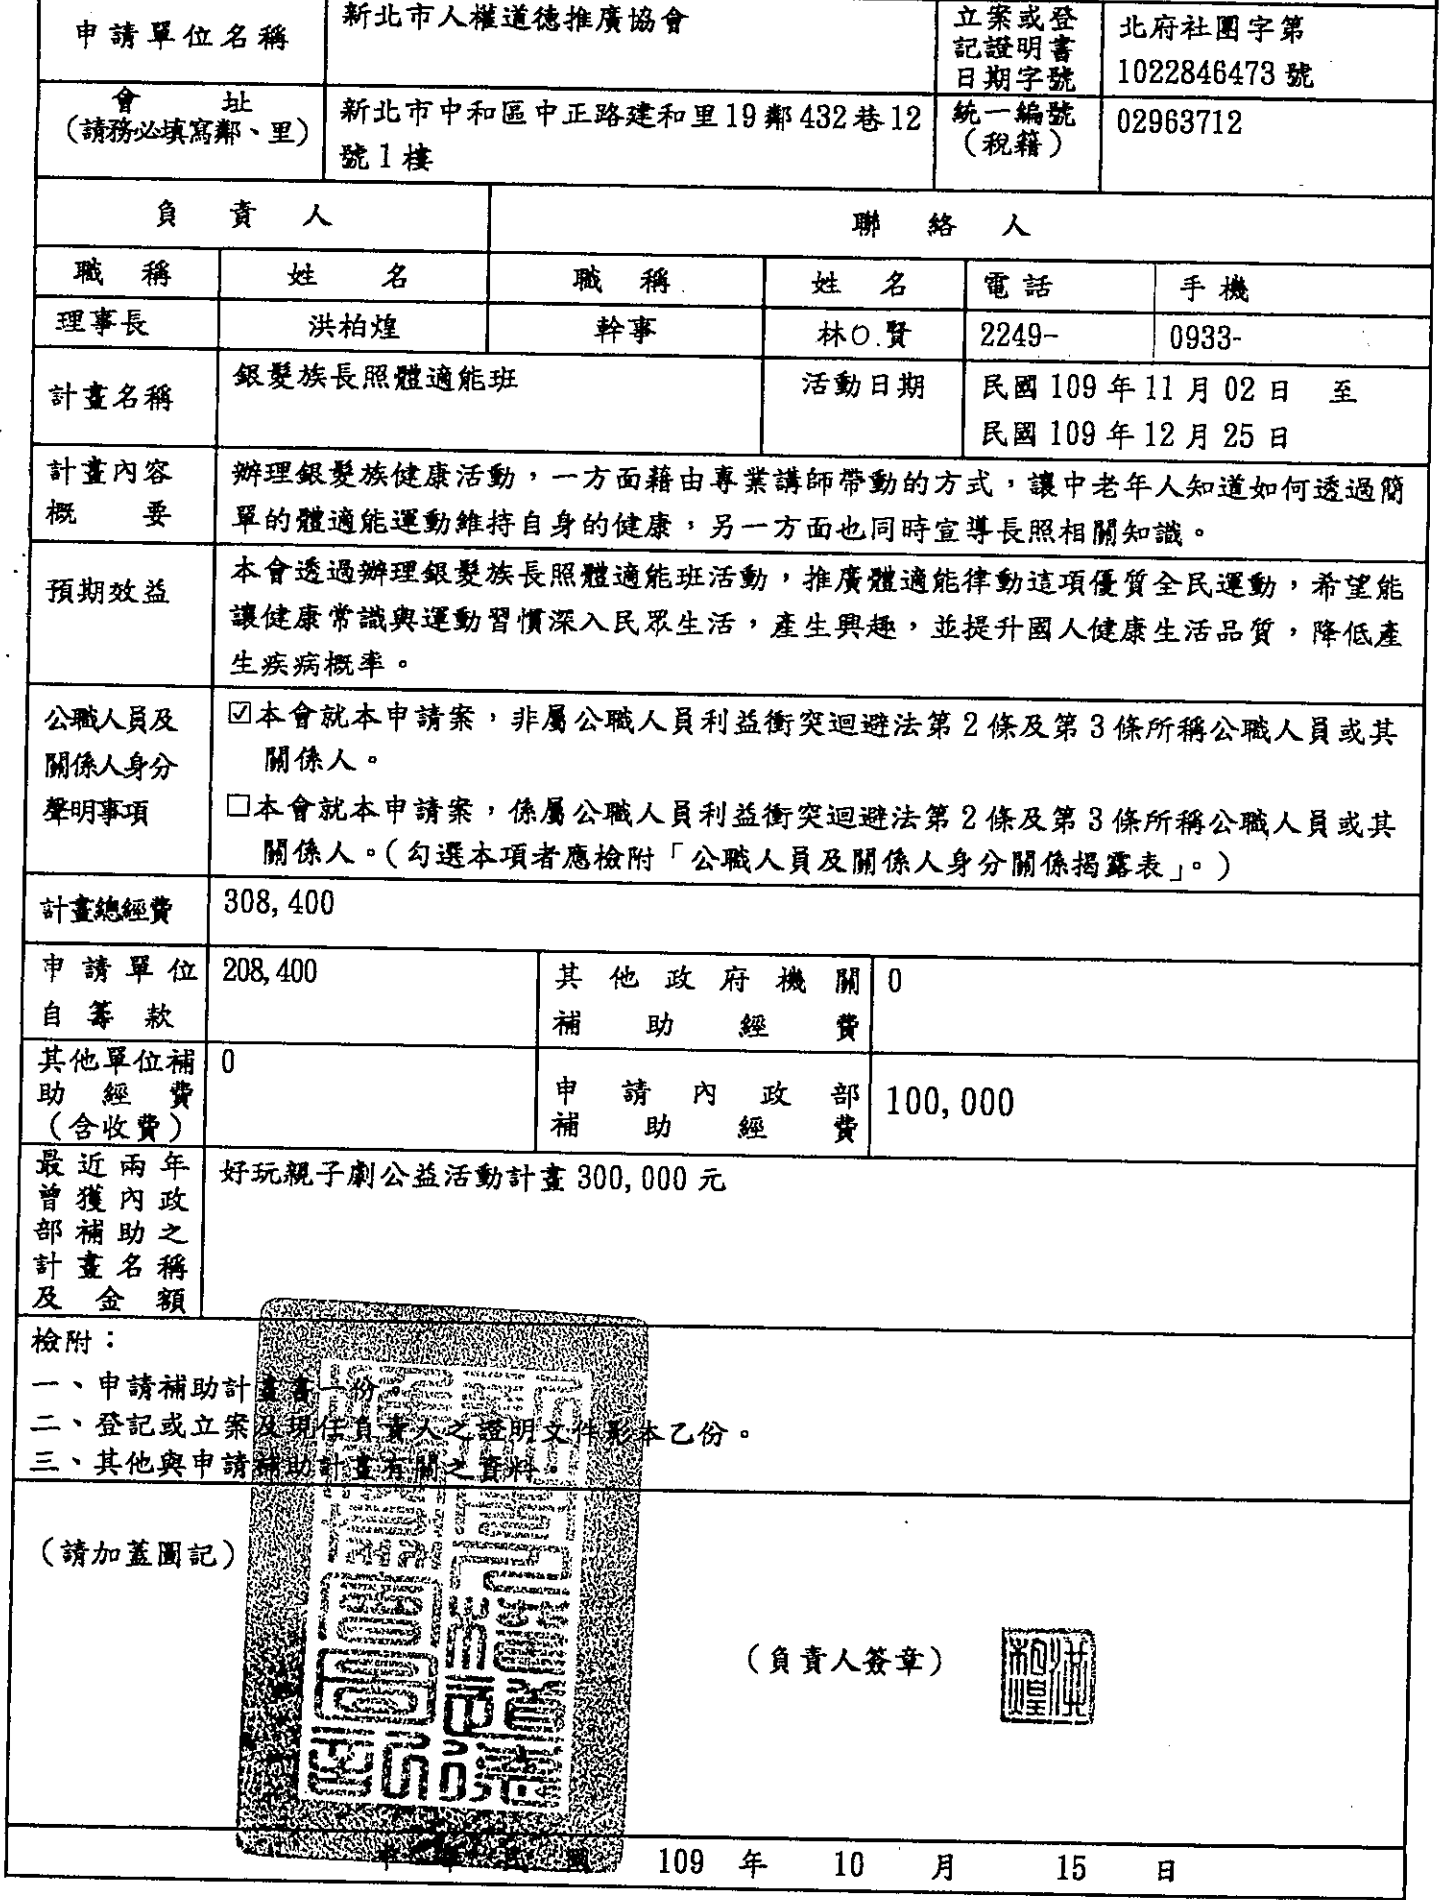 申請單位名稱
新北市人權道德推廣協會
立案或登
記證明書
日期字號
北府社團字第
1022846473 號
會址
(請務必填寫鄰、里)
新北市中和區中正路建和里19鄰432巷12
號1樓
統一編號
(稅籍)
02963712
負責人
聯絡人
職稱
姓名
職稱
姓名
電話
手機
理事長
洪柏煌
幹事
林○.賢
2249-
0933-
計畫名稱
銀髮族長照體適能班
活動日期
民國 109 年 11 月 02 日 至
民國 109 年 12 月 25 日
計畫內容
概要
辦理銀髮族健康活動，一方面藉由專業講師帶動的方式，讓中老年人知道如何透過簡
單的體適能運動維持自身的健康，另一方面也同時宣導長照相關知識。
預期效益
本會透過辦理銀髮族長照體適能班活動，推廣體適能律動這項優質全民運動，希望能
讓健康常識與運動習慣深入民眾生活，產生興趣，並提升國人健康生活品質，降低產
生疾病概率。
公職人員及
關係人身分
聲明事項
☑本會就本申請案，非屬公職人員利益衝突迴避法第2條及第3條所稱公職人員或其
關係人。
□本會就本申請案，係屬公職人員利益衝突迴避法第2條及第3條所稱公職人員或其
關係人。(勾選本項者應檢附「公職人員及關係人身分關係揭露表」。)
計畫總經費
308,400
申請單位
自籌款
208,400
其他政府機關
補助經費
0
其他單位補
助經費
(含收費)
0
申請內政部
補助經費
100,000
最近兩年
曾獲內政
部補助之
計畫名稱
及金額
好玩親子劇公益活動計畫 300,000 元
檢附：
一、申請補助計畫書一份。
二、登記或立案及現任負責人之證明文件影本乙份。
三、其他與申請補助計畫有關之資料。
(請加蓋圖記)
(負責人簽章)
洪柏煌
中華民國 109 年 10 月 15 日